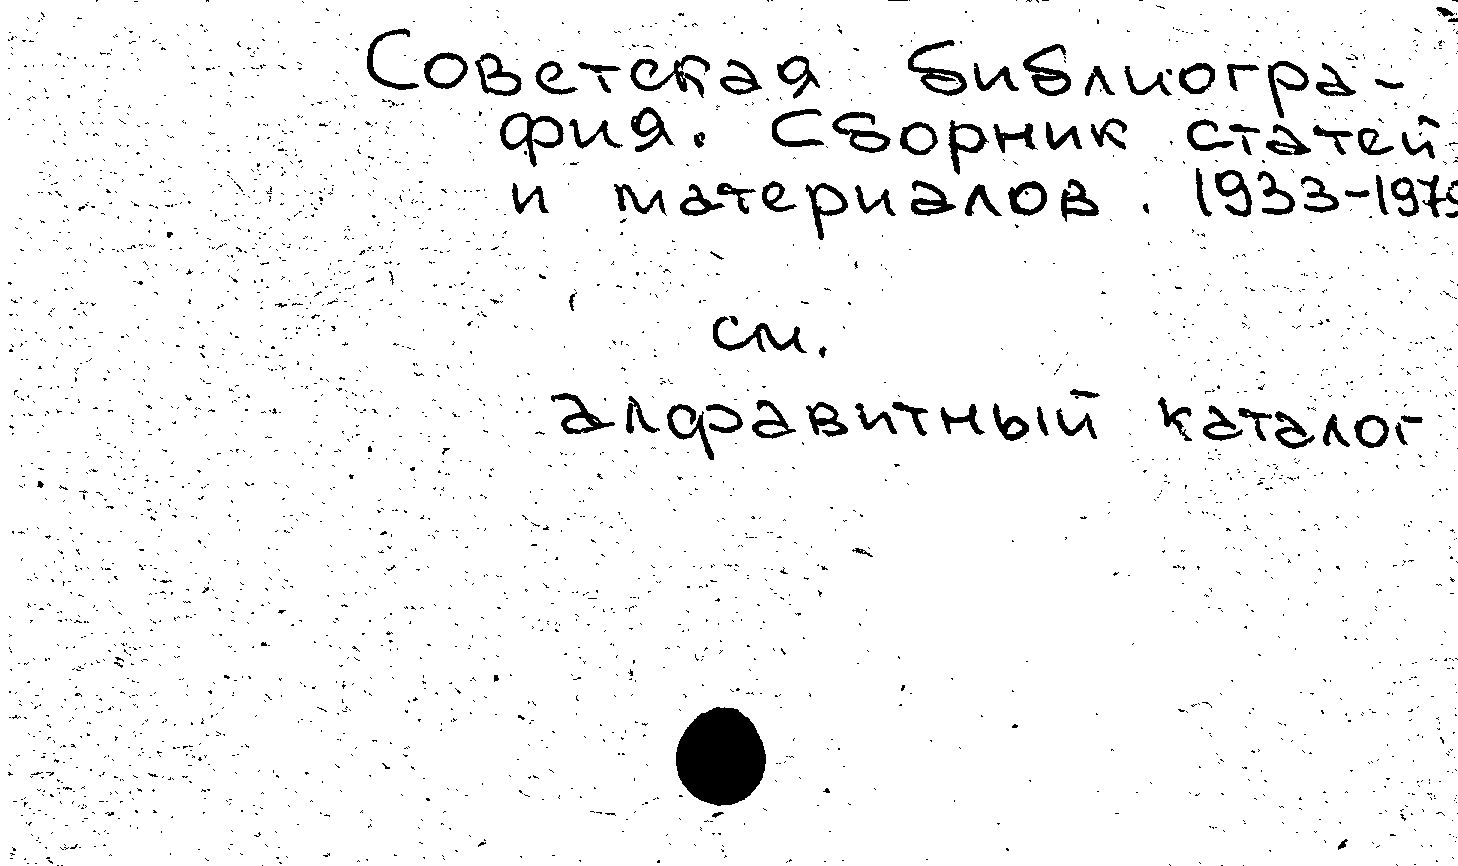 Советская библиогра-
фия. Сборник статей
и материалов. 1933-1979
см.
алфавитный каталог